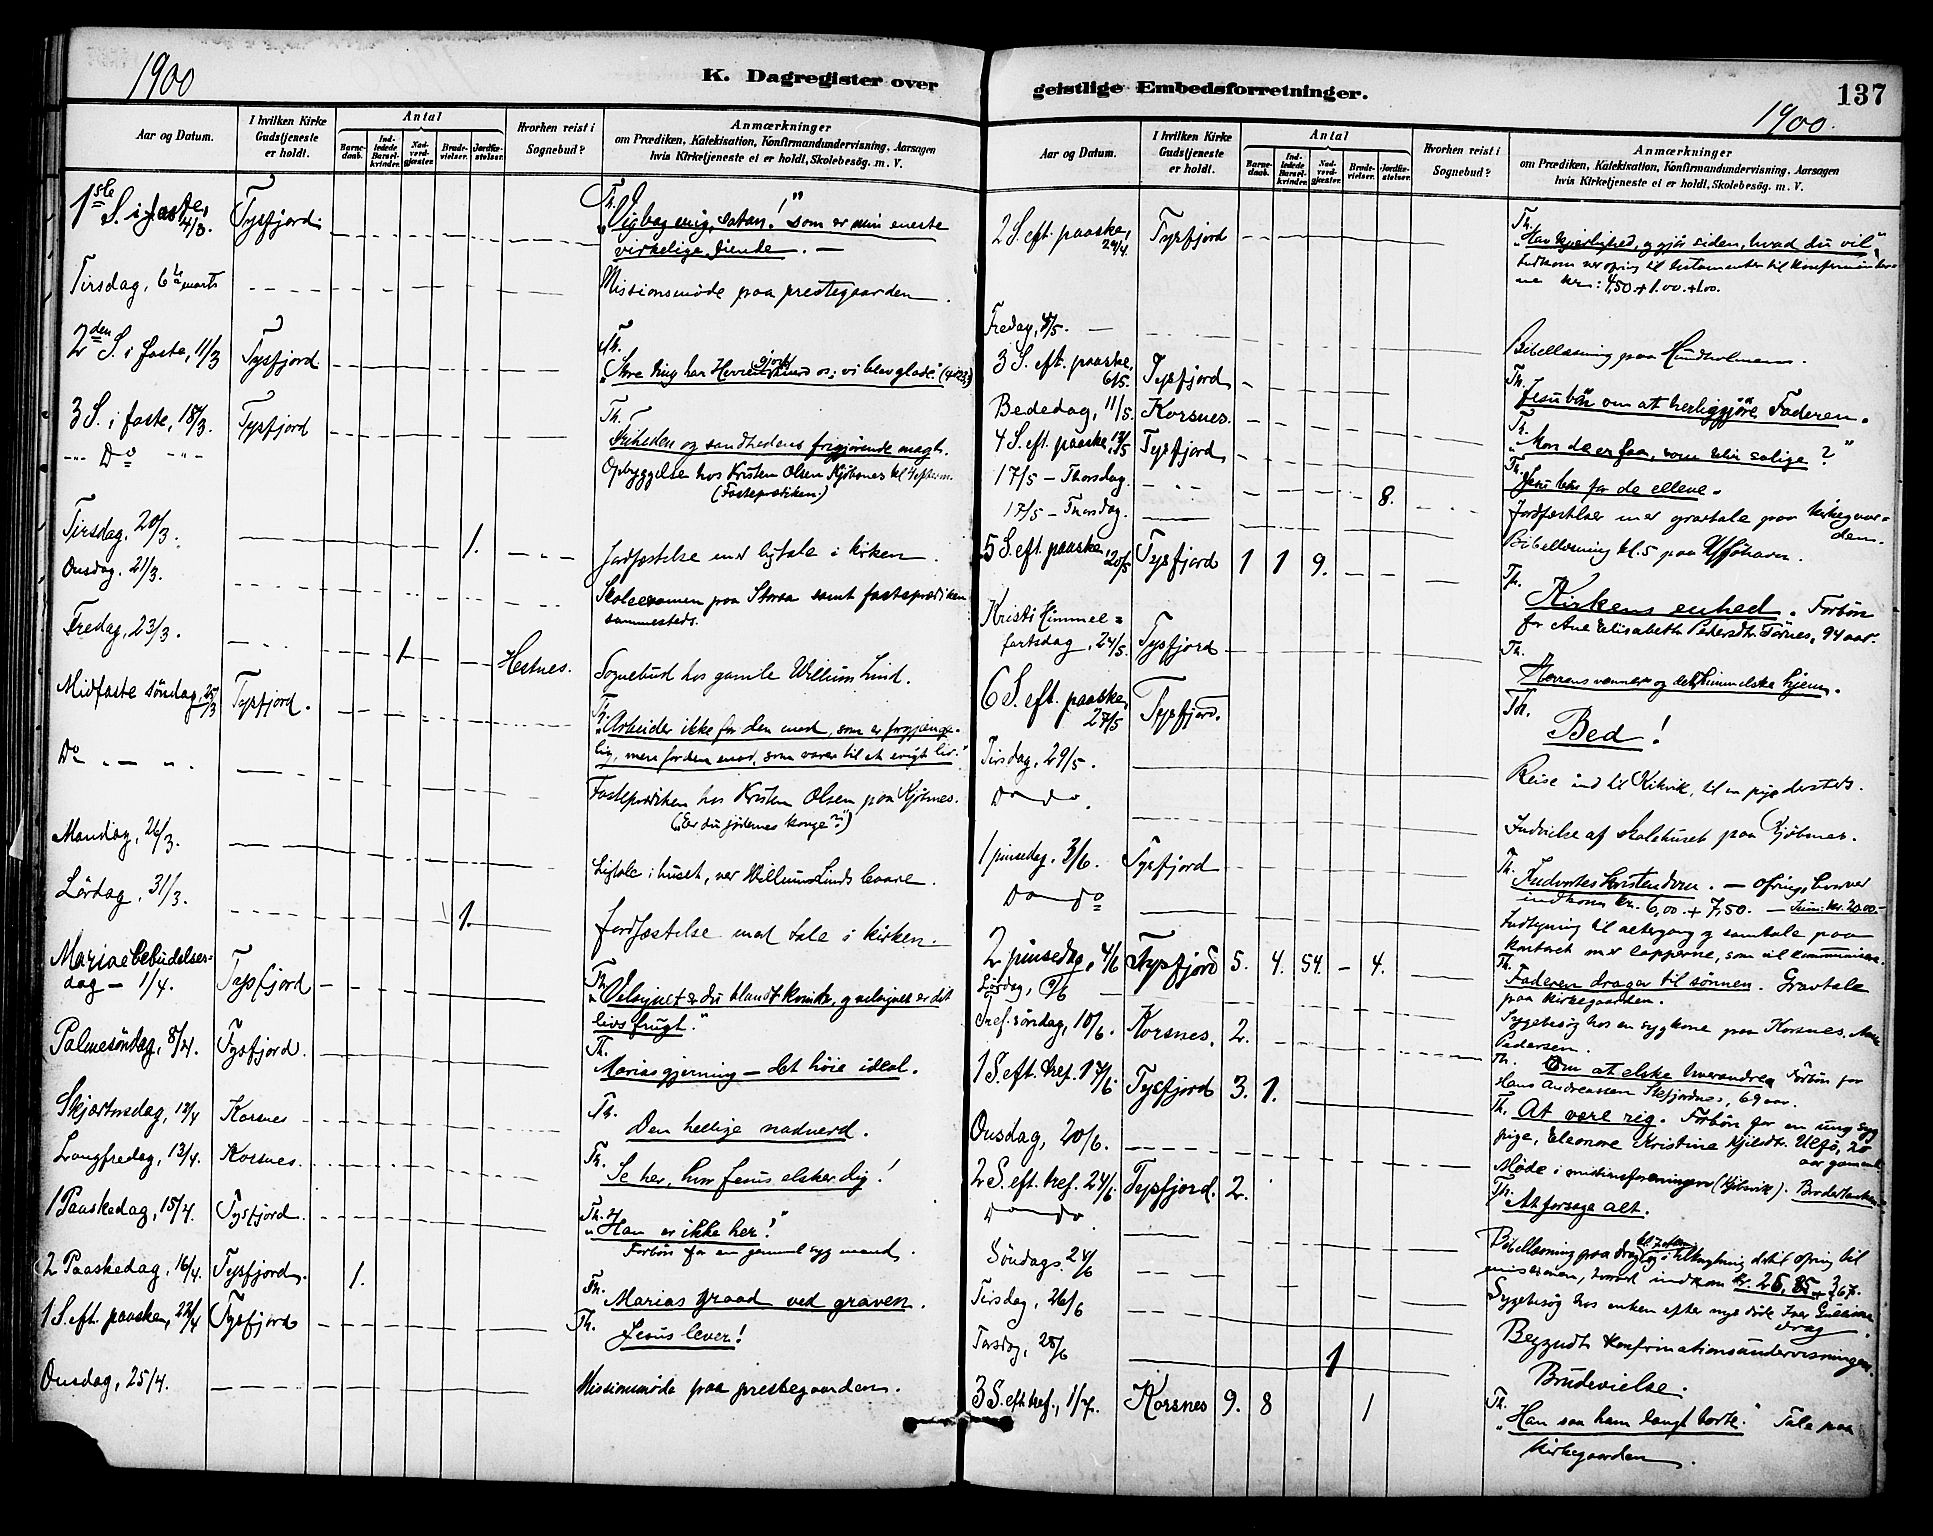 1900
K. Dagregister over
Aar og Datum.
I hvilken Kirke Gudstjeneste er holdt.
Antal
Barnedaab.
Indledede Barselkvinder.
Nadverdgjæster.
Brudevielser.
Jordfæstelser.
Hvorhen reist i Sognebud?
Anmærkninger
om Prædiken, Katekisation, Konfirmandundervisning, Aarsagen
hvis Kirketjeneste ei er holdt, Skolebesøg. m. V.
1ste S. i faste, 4/3. Tysfjord. Th. „Vig bag mig, satan!" som er min eneste
virkelige fiende. —
Tirsdag, 6te marts Missionsmøde paa prestegaarden.
2den S. i faste, 11/3 Tysfjord Th.
„Store ting har Herren gjort os; vi blev glade."
3 S. i faste, 18/3. Tysfjord Th.
Friheden og sandhedens frigjørende magt.
-"- Do -"- Opbyggelse hos Kristen Olsen Kjøbsnes kl 4
(Fasteprædiken)
Tirsdag, 20/3. 1. Jordfæstelse med ligtale i kirken.
Onsdag. 21/3. Skoleexamen paa Storaa samt fasteprædiken
sammesteds.
Fredag, 23/3. 1 Hestnes. Sognebud hos gamle Willum Lind.
Midfaste søndag, 25/3 Tysfjord. Th. „Arbeider ikke for den mad, som er forgjænge-
lig, men for den mad, som varer til et evigt liv."
Do - - - Fasteprædiken hos Kristen Olsen paa Kjøbsnes.
(„Er du jødernes konge?")
Mandag, 26/3. Ligtale i huset, ved Willum Linds baare.
Lørdag, 31/3. 1. Jordfæstelse med tale i kirken.
Mariæ bebudelses-
dag - 1/4. Tysfjord Th. „Velsignet er du blandt kvinder, og velsignet er dit
livs frugt."
Palmesøndag, 8/4. Tysfjord. Th.
Marias gjerning - det høie ideal.
Skjærtorsdag, 12/4 Korsnes Th.
Den hellige nadverd.
Langfredag, 13/4. Korsnes. Th. Se her, hvor Jesus elsker dig!
1 Paaskedag, 15/4. Tysfjord. Th. „Han er ikke her!"
Forbøn for en gammel syg mand.
2 Paaskedag, 16/4. Tysfjord. 1. Th. Marias graad ved graven.
1 S. eft. paaske, 22/4 Tysfjord Th. Jesus lever!
Onsdag, 25/4. Missionsmøde paa prestegaarden.
geistlige Embedsforretninger.
137
1900.
Aar og Datum.
I hvilken Kirke Gudstjeneste er holdt.
Antal
Barnedaab.
Indledede Barselkvinder.
Nadverdgjæster.
Brudevielser.
Jordfæstelser.
Hvorhen reist i Sognebud?
Anmærkninger
om Prædiken, Katekisation, Konfirmandundervisning, Aarsagen
hvis Kirketjeneste ei er holdt, Skolebesøg. m. V.
2 S. eft. paaske, 29/4. Tysfjord Th. „Hav kjærlighed, og gjør siden, hvad du vil"
Indkom ved ofring til testamenter til konfirmander-
ne kr.: 4,50 + 1.00. + 1.00.
Fredag, 4/5. — Bibellæsning paa Hundholmen.
3 S. eft. paaske, 6/5. Tysfjord Th. Jesu bøn om at herliggjøre Faderen.
Bededag, 11/5. Korsnes. Th. „Mon de er faa, som blir salige?"
4 S. eft. paaske, 13/5 Tysfjord Th. Jesu bøn for de elleve.
17/5 - Thorsdag. 8. Jordfæstelser med gravtale paa kirkegaar-
den.
17/5 - Torsdag. Bibellæsning kl. 5 paa
5 S. eft. paaske, 20/5 Tysfjord 1 1 9. Th. Kirkens enhed. Forbøn
for Ane Elisabeth Pedersdtr. 94 aar.
Kristi Himmel=
fartsdag, 24/5. Tysfjord Th.
Herrens venner og det himmelske hjem.
6 S. eft. paaske, 27/5 Tysfjord. Th.
Bed!
Tirsdag, 29/5. Reise ind til
Do - do. Indvielse af Skolehuset paa Kjøbsnes.
1 pinsedag. 3/6. Tysfjord Th. Indvortes kristendom. — Ofring, hvorved
indkom kr. 6,00. + 7,50. — kr. 20.00.
Do - Do Indtegning til altergang og samtale paa
kontoret med lapperne, som vil kommunicere.
2 pinsedag, 4/6 Tysfjord 5. 4. 54. - 4. Th. Faderen drager til sønnen. Gravtale
paa kirkegaarden.
Lørdag, 9/6 — Sygebesøg hos en syg kone paa Korsnes.
Pedersen.
Tref. søndag, 10/6. Korsnes. 2. Th. Om at elske hverandre. Forbøn for
Hans Andreassen Stefjordnes, 69 aar.
1 S. eft. tref. 17/6. Tysfjord 3. 1. Th. At være rig. Forbøn for en ung syg
pige, Eleonore Kristine Kjeldtr. Ulfø, 20
aar gammel
Onsdag, 20/6. Møde i missionsforeningen (Kjøbsvik).
2 S. eft. tref. 24/6. Tysfjord. 2. Th. At forsage alt.
Do - do.
Søndags. 24/6 Bibellæsning paa Drag og i tilknytning dertil ofring til
missionen, hvorved indkom kr. 25,85 + 3,67.
Tirsdag, 26/6 Sygebesøg hos enken efter nys døde
Drag
Begyndt konfirmationsundervisningen.
Torsdag, 28/6 1 Brudevielse.
3 S. eft. tref., 1/7. Korsnes 9. 8 1 Th. „Han saa ham langt borte." Tale paa
kirkegaarden.